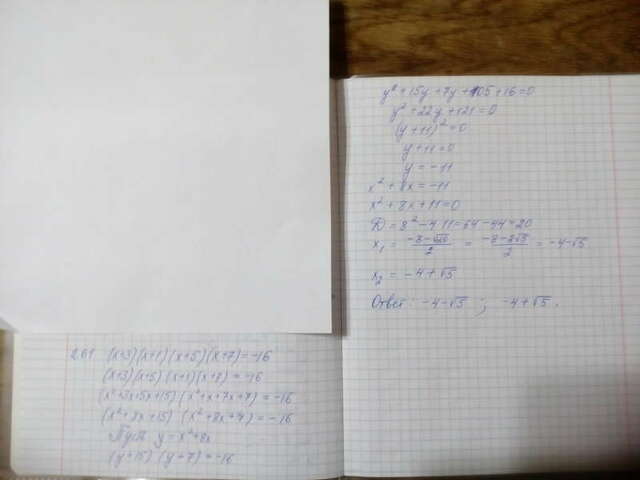 2.61 (x+3)(x+1)(x+5)(x+7)=-16
(x+3)(x+5)(x+1)(x+7)=-16
(x²+3x+5x+15)(x²+x+7x+7)=-16
(x²+8x+15)(x²+8x+7)=-16
Пусть y=x²+8x
(y+15)(y+7)=-16
y²+15y+7y+105+16=0
y²+22y+121=0
(y+11)²=0
y+11=0
y=-11
x²+8x=-11
x²+8x+11=0
D=8²-4·11=64-44=20
x₁=(-8-√20)/2=(-8-2√5)/2=-4-√5
x₂=-4+√5
Ответ: -4-√5; -4+√5.